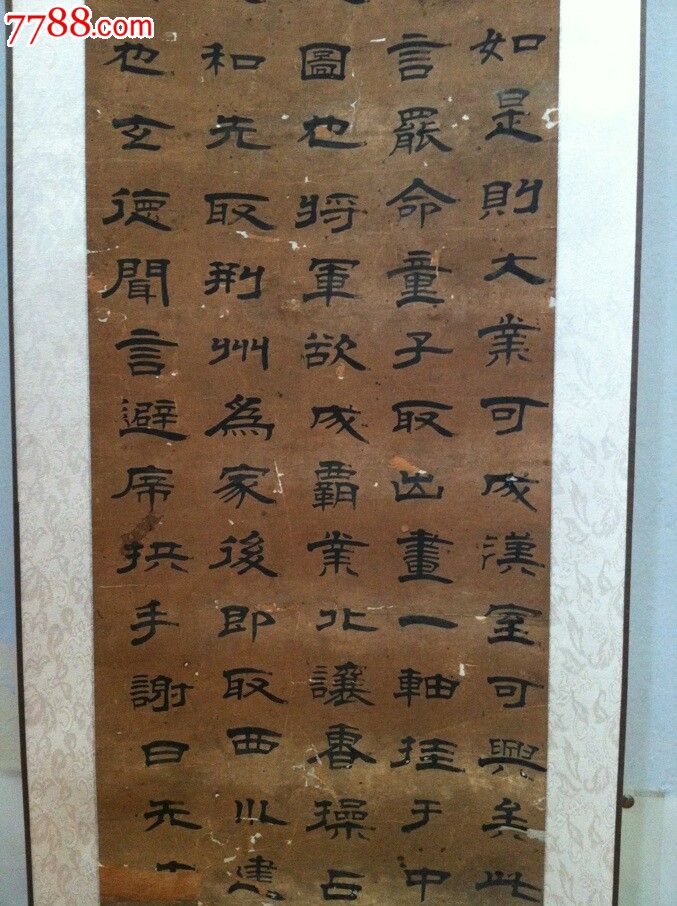 7788.com
如是則大業可成漢室可興矣此
言罷命童子取出畫一軸挂于中
圖也將軍欲成霸業北讓曹操占
和先取荆州為家後即取西川建
也玄德聞言避席拱手謝曰先